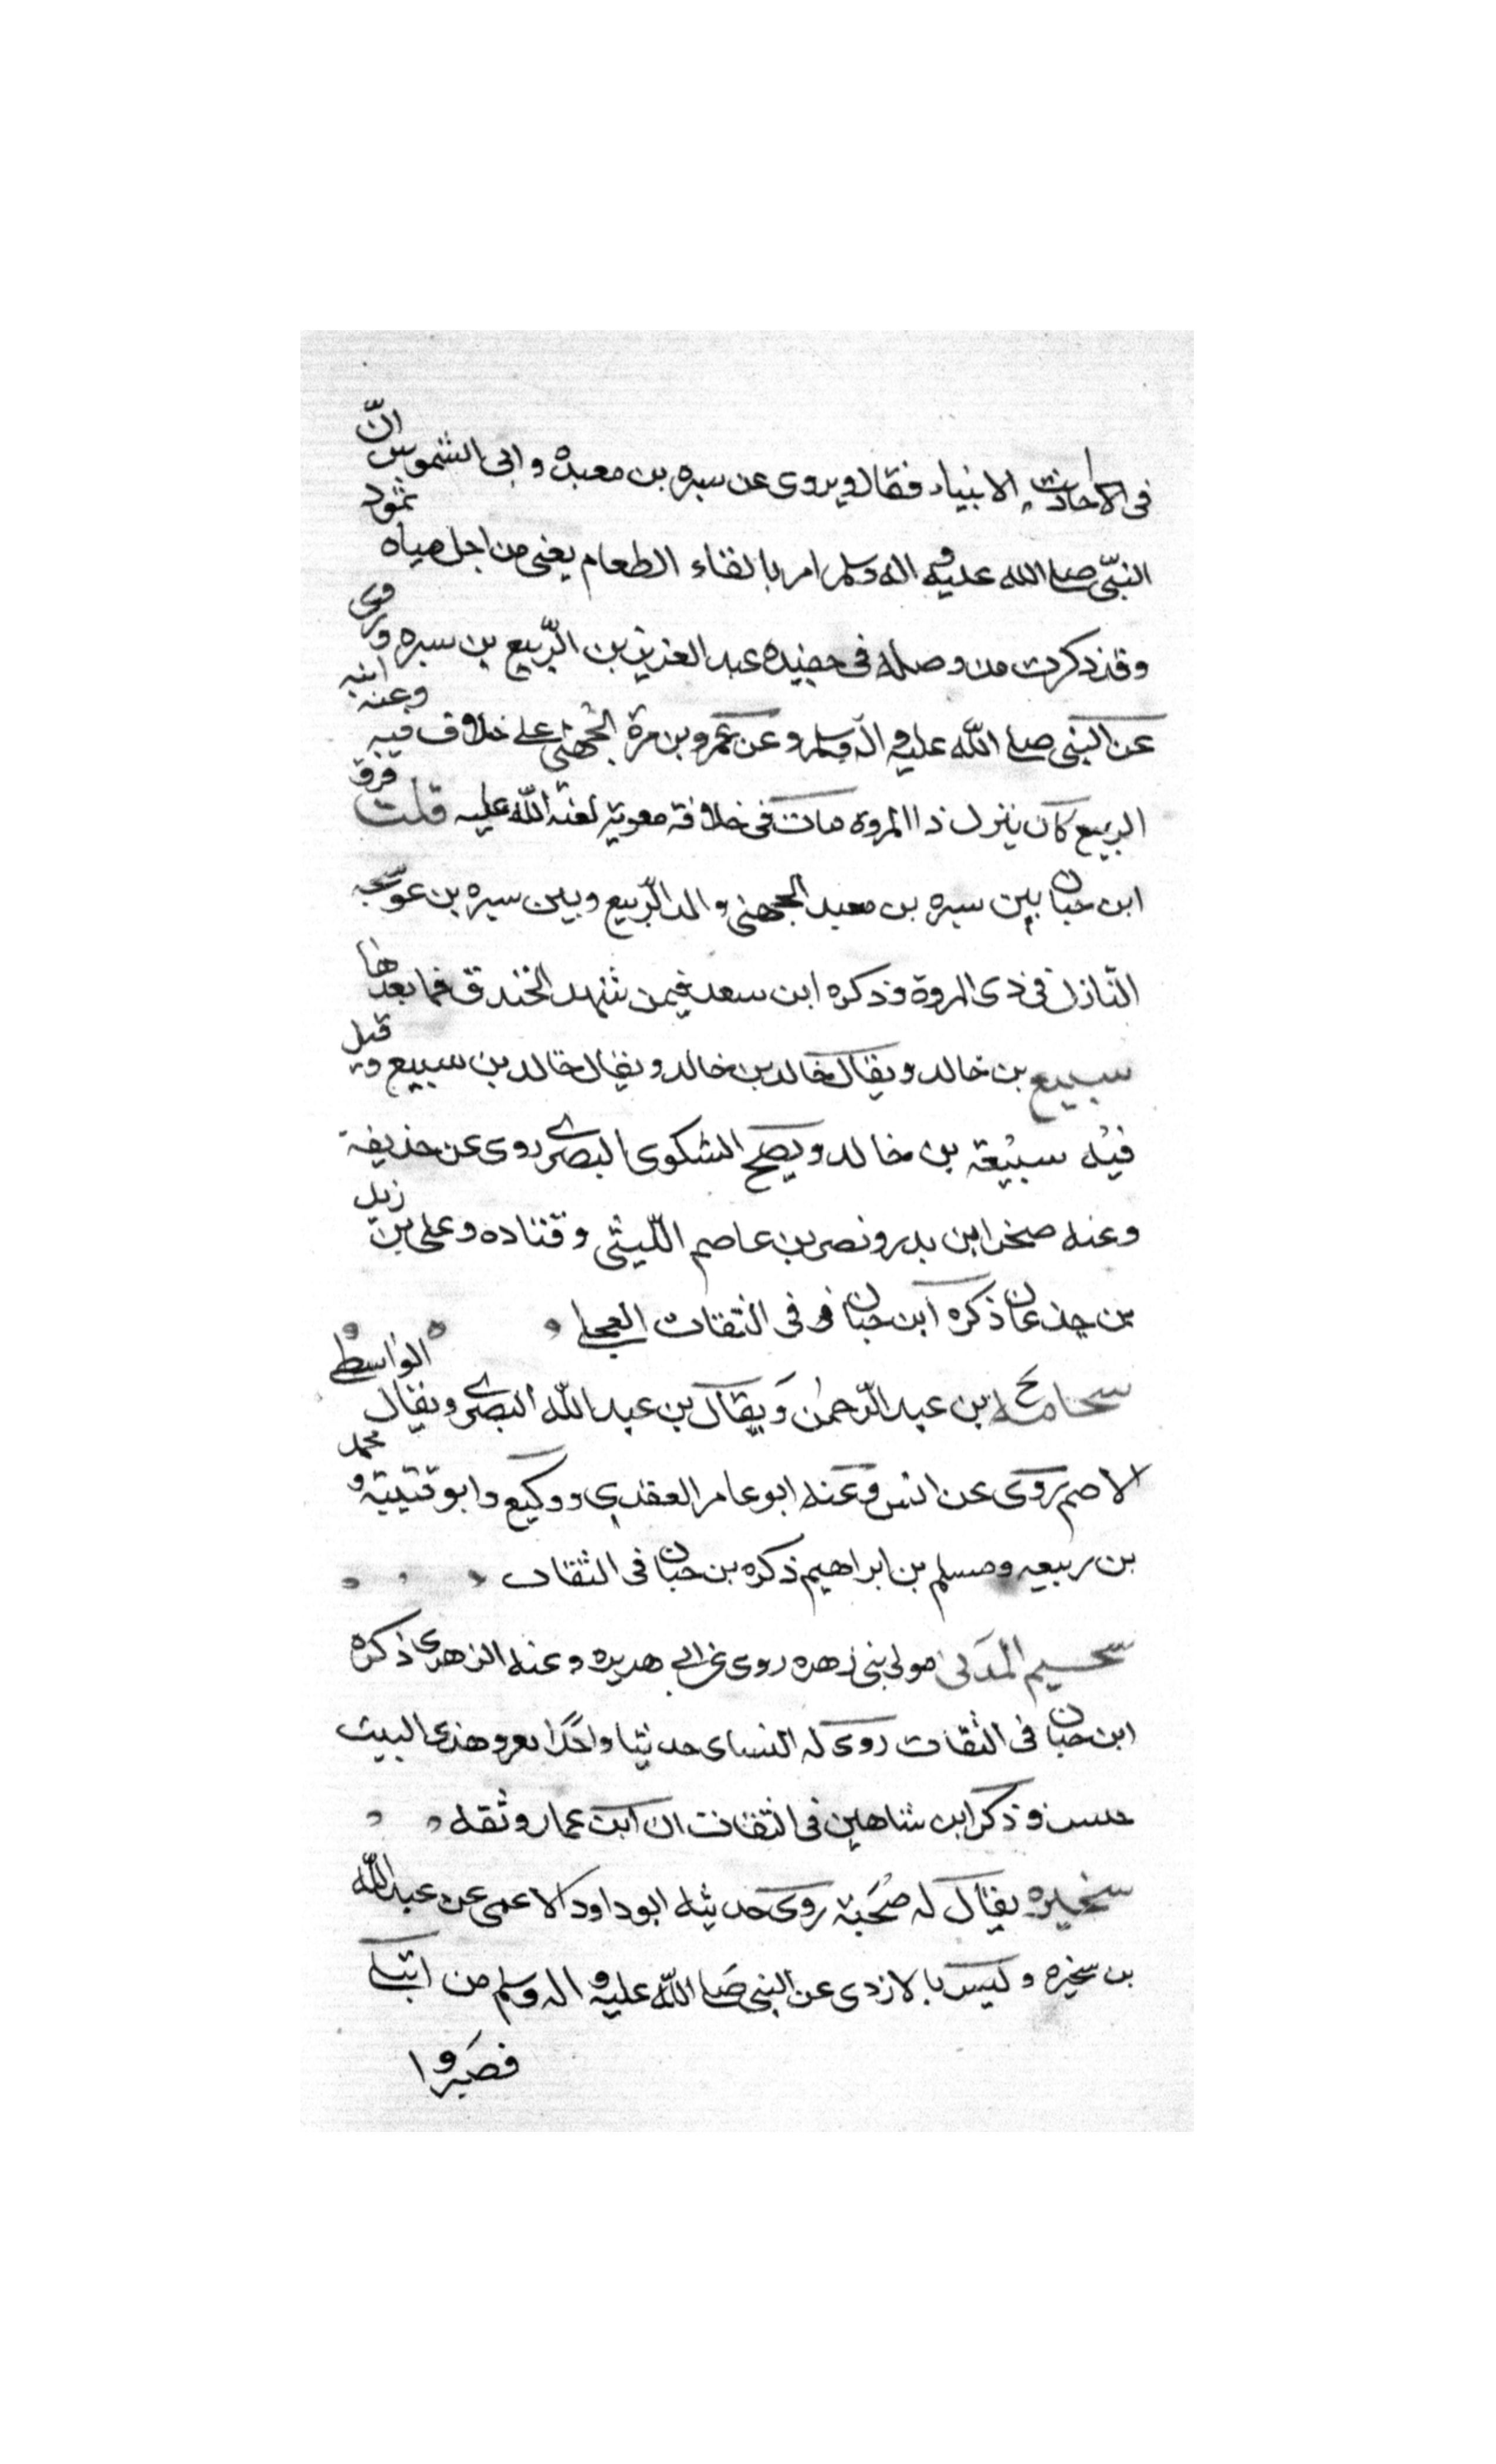 فى الاحاديث الانبياء فقال ويروى عن سبره بن معبده وابى الشموس انّ
النبّى صلى الله عليه واله وسلم امر بالقاء الطعام يعنى من اجل مياه ثمود
وقد ذكرت من وصله فى حفيده عبد العزيز بن الرّبيع بن سبره وروى
عن النبى صلى الله عليه وآله وسلم وعن عمرو بن مرة الجُهنى على خلاف فيه وعنه ابنه
الربيع كان ينزل ذا المروه مات فى خلافة معوية لعنة الله عليه قلت فرق
ابن حبان بين سبره بن معبد الجهنى والد الرّبيع وبين سبره بن عوسجه
النّازل فى ذى المروة وذكره ابن سعد فيمن شهد الخندق فما بعدها
سبيع بن خالد ويقال خالد بن خالد ويقال خالد بن سبيع وقيل
فيْه سبيْعة بن خالد ويصح الشكوى البصرى روى عن حذيفة
وعنه صخر ابن بدر ونصر بن عاصم اللّيثى وقتاده وعلى بن زيد
بن جذعان ذكره ابن حبان فى الثقات العجلى
سحامه بن عبد الرّحمٰن وَيقال بن عبد الله البصرى ويقال الواسطى
الاصم روى عن انس وعنه ابو عامر العقدي ووكيع وابو قتيبة ومحمد
بن ربيعه ومسلم بن ابراهيم ذكره بن حبان فى الثقات
سحيم المدَنى مولى بنى زهره روى عن ابى هريره وعنه الزهرى ذكره
ابن حبان فى الثقات روى له النساى حديثا واحدًا يغزو هذى البيت
جيش وذكر ابن شاهين فى الثقات ان ابن عمار وثقه
سخبره يقال له صُحْبة روى حديثه ابو داود الاعمى عن عبد الله
بن سخبره وليس بالازدى عن النبى صَلى الله عليه واله وسلم من ابتلى
فصَبروا